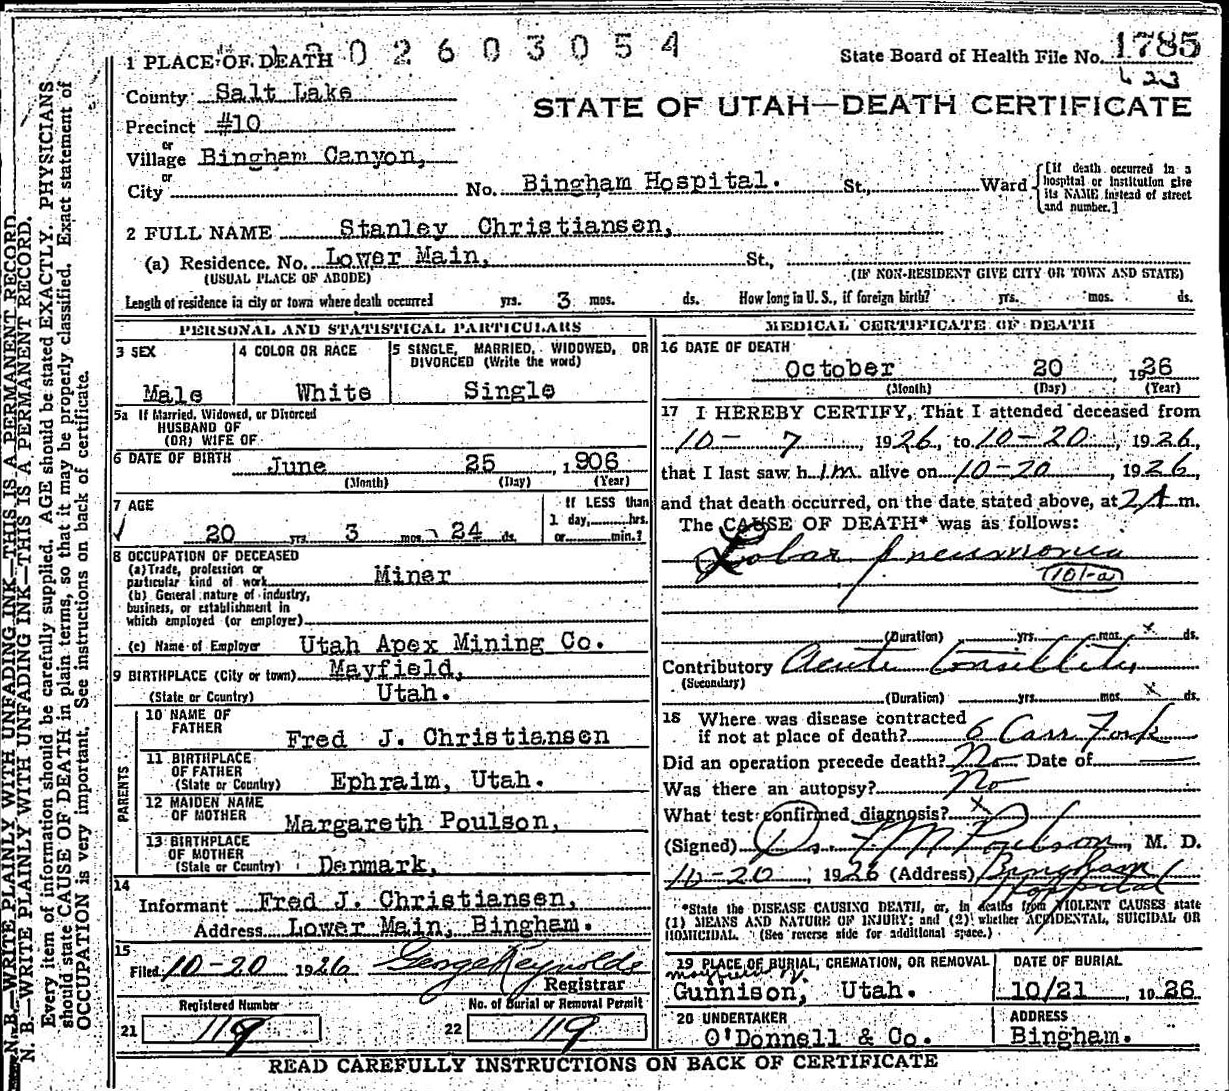 02603054
State Board of Health File No. 1785
1 PLACE OF DEATH
County Salt Lake
STATE OF UTAH—DEATH CERTIFICATE
Precinct #10
or
Village Bingham Canyon,
or
City No. Bingham Hospital. St., Ward
[If death occurred in a hospital or institution give its NAME instead of street and number.]
2 FULL NAME Stanley Christiansen,
(a) Residence. No. Lower Main, St.,
(USUAL PLACE OF ABODE) (IF NON-RESIDENT GIVE CITY OR TOWN AND STATE)
Length of residence in city or town where death occurred yrs. 3 mos. ds. How long in U. S., if foreign birth? yrs. mos. ds.
PERSONAL AND STATISTICAL PARTICULARS
3 SEX
Male
4 COLOR OR RACE
White
5 SINGLE, MARRIED, WIDOWED, OR
DIVORCED (Write the word)
Single
5a If Married, Widowed, or Divorced
HUSBAND OF
(OR) WIFE OF
6 DATE OF BIRTH June 25, 1906
(Month) (Day) (Year)
7 AGE
20 yrs. 3 mos. 24 ds.
If LESS than
1 day, hrs.
or min.?
8 OCCUPATION OF DECEASED
(a) Trade, profession or
particular kind of work Miner
(b) General nature of industry,
business, or establishment in
which employed (or employer)
(c) Name of Employer Utah Apex Mining Co.
9 BIRTHPLACE (City or town) Mayfield,
(State or Country) Utah.
PARENTS
10 NAME OF
FATHER Fred J. Christiansen
11 BIRTHPLACE
OF FATHER
(State or Country) Ephraim, Utah.
12 MAIDEN NAME
OF MOTHER Margareth Poulson,
13 BIRTHPLACE
OF MOTHER
(State or Country) Denmark,
14
Informant Fred J. Christiansen,
Address Lower Main, Bingham.
15
Filed 10-20 1926 George Reynolds
Registrar
Registered Number
21 119
No. of Burial or Removal Permit
22 119
MEDICAL CERTIFICATE OF DEATH
16 DATE OF DEATH
October 20, 1926
(Month) (Day) (Year)
17 I HEREBY CERTIFY, That I attended deceased from
10-7, 1926, to 10-20, 1926,
that I last saw h im alive on 10-20, 1926
and that death occurred, on the date stated above, at 2 A m.
The CAUSE OF DEATH* was as follows:
Lobar pneumonia
101-a
(Duration) yrs. mos. x ds.
Contributory Acute tonsillitis
(Secondary)
(Duration) yrs. mos. x ds.
18 Where was disease contracted
if not at place of death? 6 Carr Fork
Did an operation precede death? No Date of —
Was there an autopsy? No
What test confirmed diagnosis? x
(Signed) Dr. F M Poulson, M. D.
10-20, 1926 (Address) Bingham
Hospital
*State the DISEASE CAUSING DEATH, or, in deaths from VIOLENT CAUSES state
(1) MEANS AND NATURE OF INJURY; and (2) whether ACCIDENTAL, SUICIDAL OR
HOMICIDAL. (See reverse side for additional space.)
19 PLACE OF BURIAL, CREMATION, OR REMOVAL
Mayfield
Gunnison, Utah.
DATE OF BURIAL
10/21, 1926
20 UNDERTAKER
O'Donnell & Co.
ADDRESS
Bingham.
READ CAREFULLY INSTRUCTIONS ON BACK OF CERTIFICATE
N. B.—WRITE PLAINLY WITH UNFADING INK—THIS IS A PERMANENT RECORD.
N. B.—WRITE PLAINLY WITH UNFADING INK—THIS IS A PERMANENT RECORD.
Every item of information should be carefully supplied. AGE should be stated EXACTLY. PHYSICIANS
should state CAUSE OF DEATH in plain terms, so that it may be properly classified. Exact statement of
OCCUPATION is very important. See instructions on back of certificate.